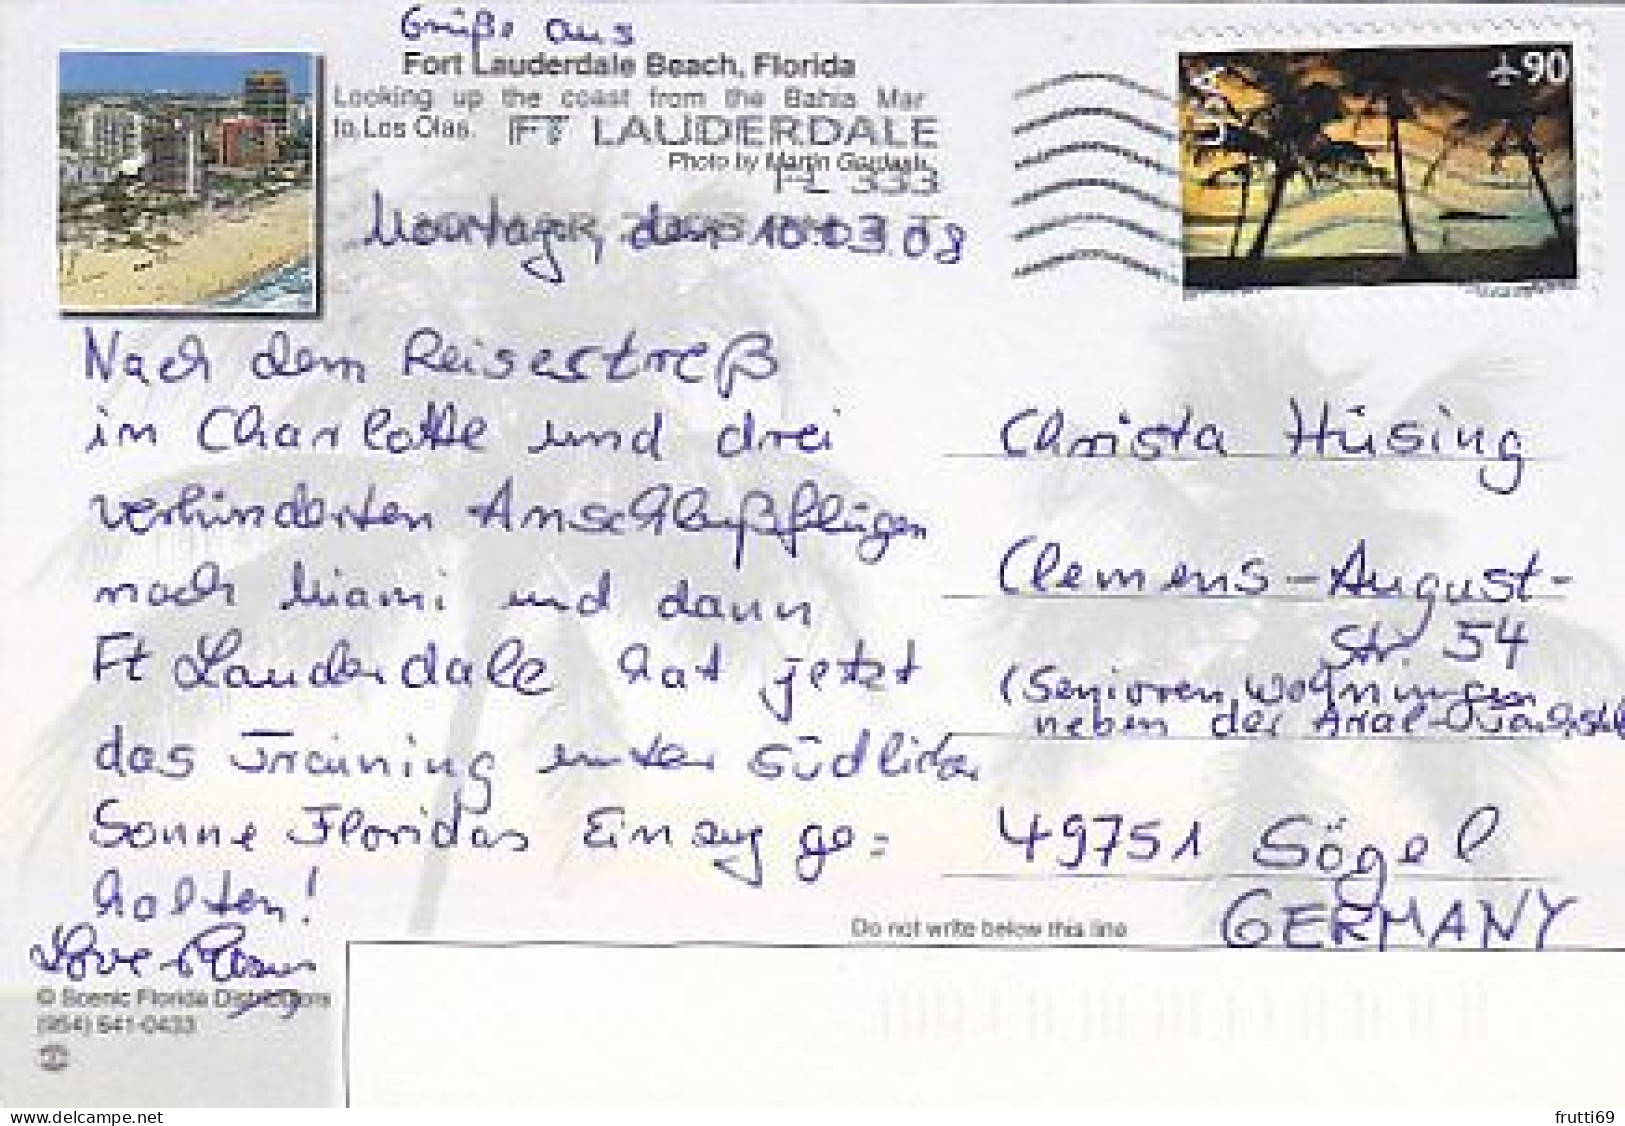 Grüße aus
Fort Lauderdale Beach, Florida
Looking up the coast from the Bahia Mar
to Los Olas.
FT LAUDERDALE
Photo by Martin
FL 333
Montag, den 10.03.08
USA
90
Nach dem Reisestreß
in Charlotte und drei
verhinderten Anschlußflügen
nach Miami und dann
Ft Lauderdale hat jetzt
das Training unter südlicher
Sonne Floridas Einzug ge=
halten!
Love
Christa Hüsing
Clemens-August-
Str. 54
(Seniorenwohnungen
neben der Aral-
49751 Sögel
GERMANY
Do not write below this line
© Scenic Florida Distributors
(954) 641-0433
frutti69